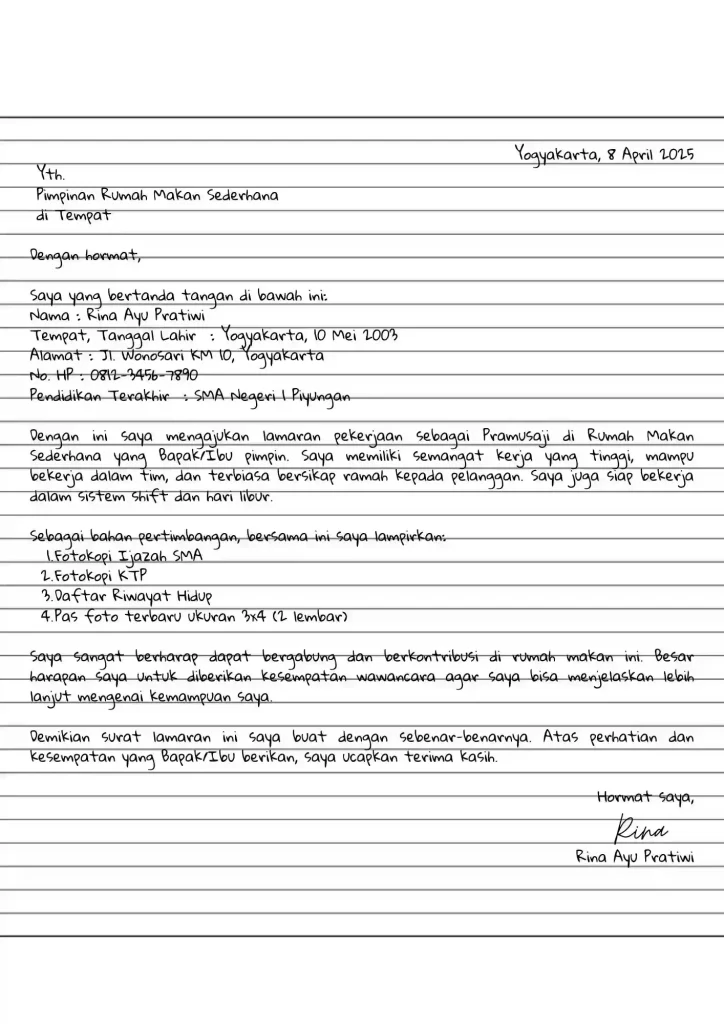 Yogyakarta, 8 April 2025
Yth.
Pimpinan Rumah Makan Sederhana
di Tempat
Dengan hormat,
Saya yang bertanda tangan di bawah ini:
Nama : Rina Ayu Pratiwi
Tempat, Tanggal Lahir : Yogyakarta, 10 Mei 2003
Alamat : Jl. Wonosari KM 10, Yogyakarta
No. HP : 0812-3456-7890
Pendidikan Terakhir : SMA Negeri 1 Piyungan
Dengan ini saya mengajukan lamaran pekerjaan sebagai Pramusaji di Rumah Makan
Sederhana yang Bapak/Ibu pimpin. Saya memiliki semangat kerja yang tinggi, mampu
bekerja dalam tim, dan terbiasa bersikap ramah kepada pelanggan. Saya juga siap bekerja
dalam sistem shift dan hari libur.
Sebagai bahan pertimbangan, bersama ini saya lampirkan:
1.Fotokopi Ijazah SMA
2.Fotokopi KTP
3.Daftar Riwayat Hidup
4.Pas foto terbaru ukuran 3x4 (2 lembar)
Saya sangat berharap dapat bergabung dan berkontribusi di rumah makan ini. Besar
harapan saya untuk diberikan kesempatan wawancara agar saya bisa menjelaskan lebih
lanjut mengenai kemampuan saya.
Demikian surat lamaran ini saya buat dengan sebenar-benarnya. Atas perhatian dan
kesempatan yang Bapak/Ibu berikan, saya ucapkan terima kasih.
Hormat saya,
Rina
Rina Ayu Pratiwi